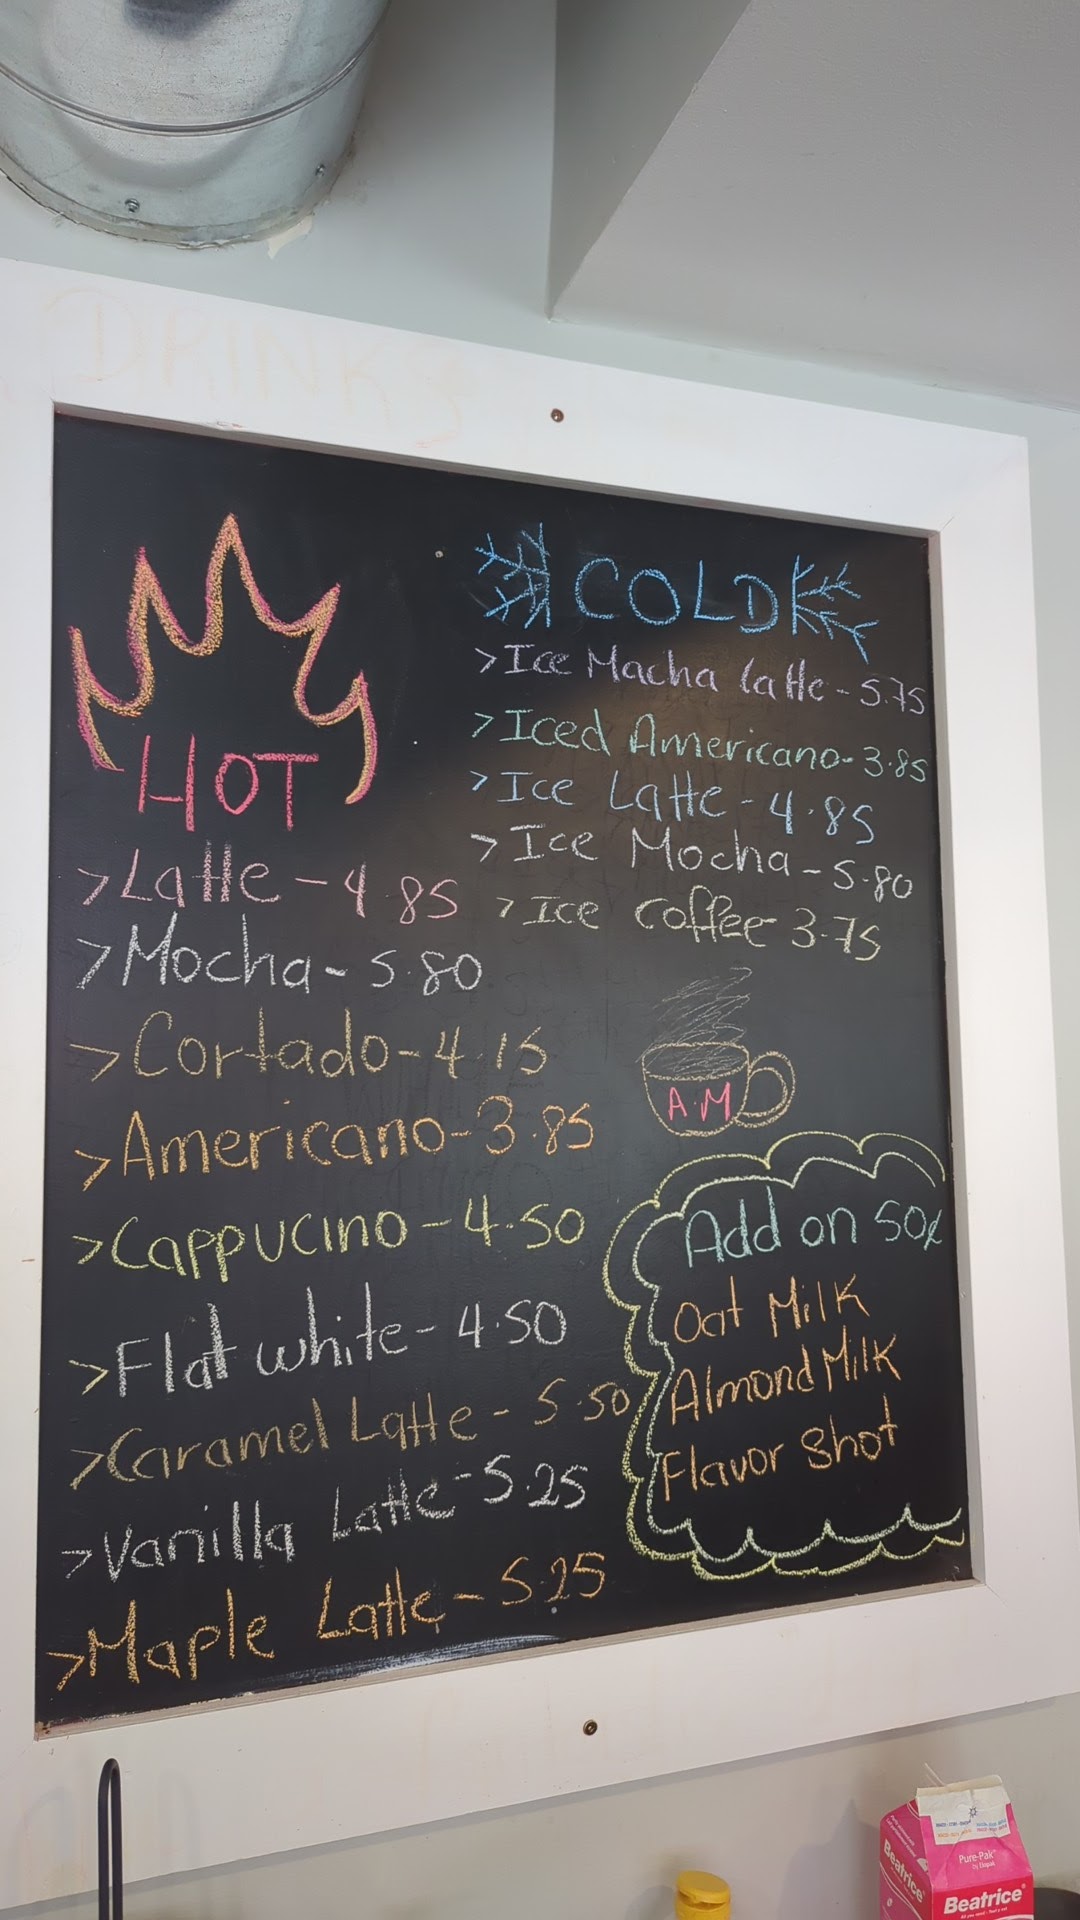 DRINKS
HOT
>Latte - 4.85
>Mocha - 5.80
>Cortado - 4.15
>Americano - 3.85
>Cappucino - 4.50
>Flat white - 4.50
>Caramel Latte - 5.50
>Vanilla Latte - 5.25
>Maple Latte - 5.25
COLD
>Ice Macha latte - 5.75
>Iced Americano - 3.85
>Ice Latte - 4.85
>Ice Mocha - 5.80
>Ice coffee - 3.75
A.M
Add on 50¢
Oat Milk
Almond Milk
Flavor Shot
Pure-Pak
by Elopak
Beatrice
Beatrice